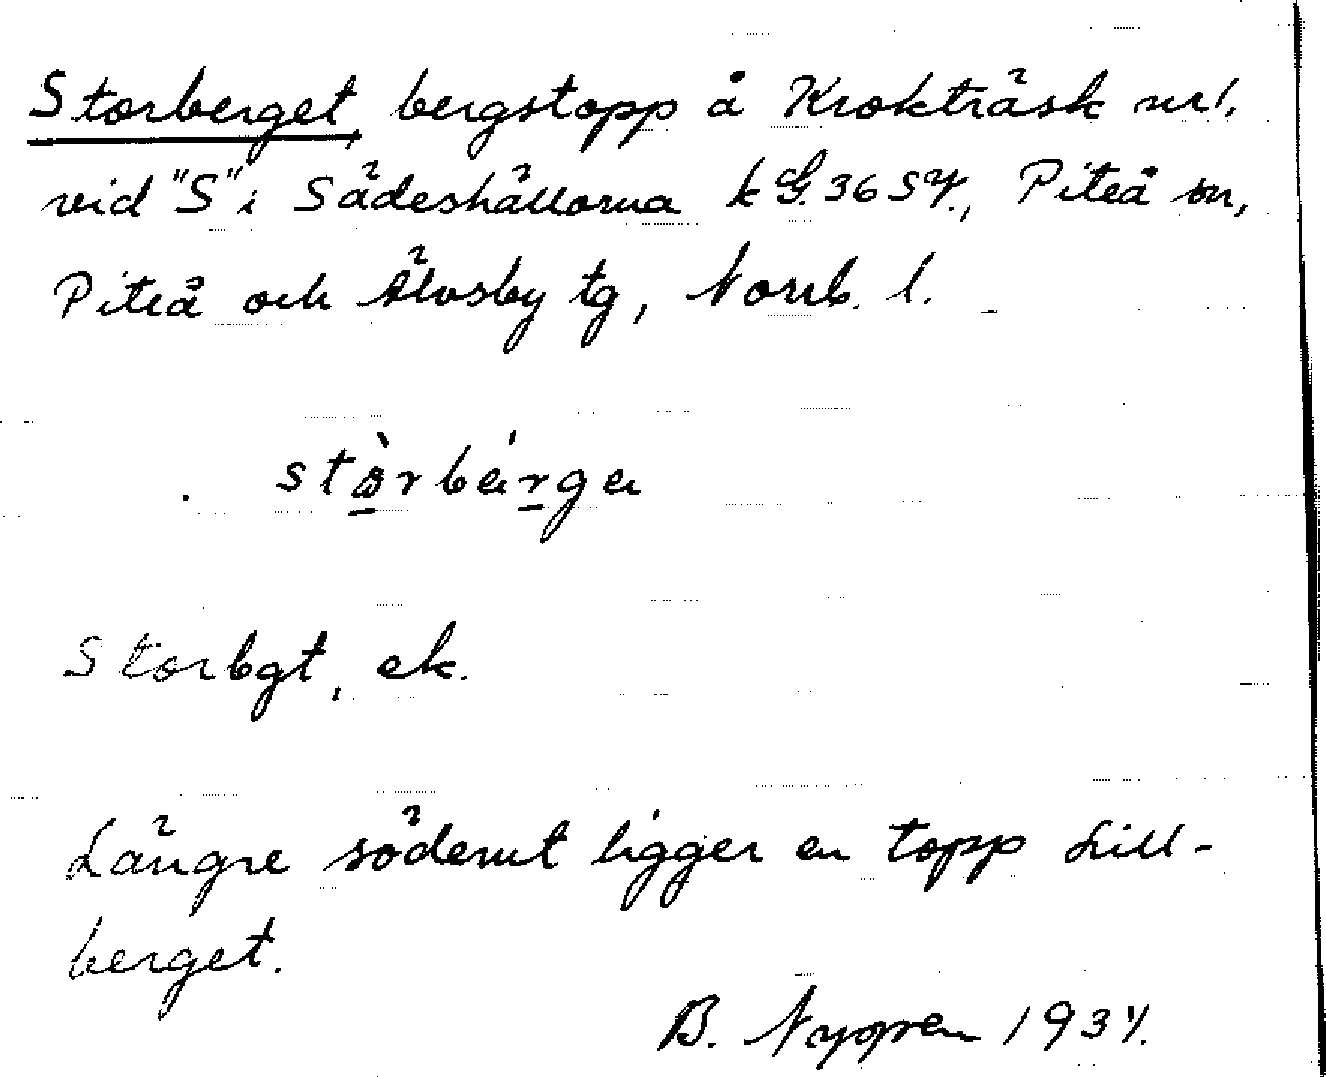 Storberget, bergstopp å Krokträsk
vid "S" i Sädeshällorna k G. 36 SV., Piteå sn,
Piteå och Älvsby tg, Norrb. l.
Storbgt, ek.
Längre söderut ligger en topp Lill-
berget.
B. Nygren 1934.